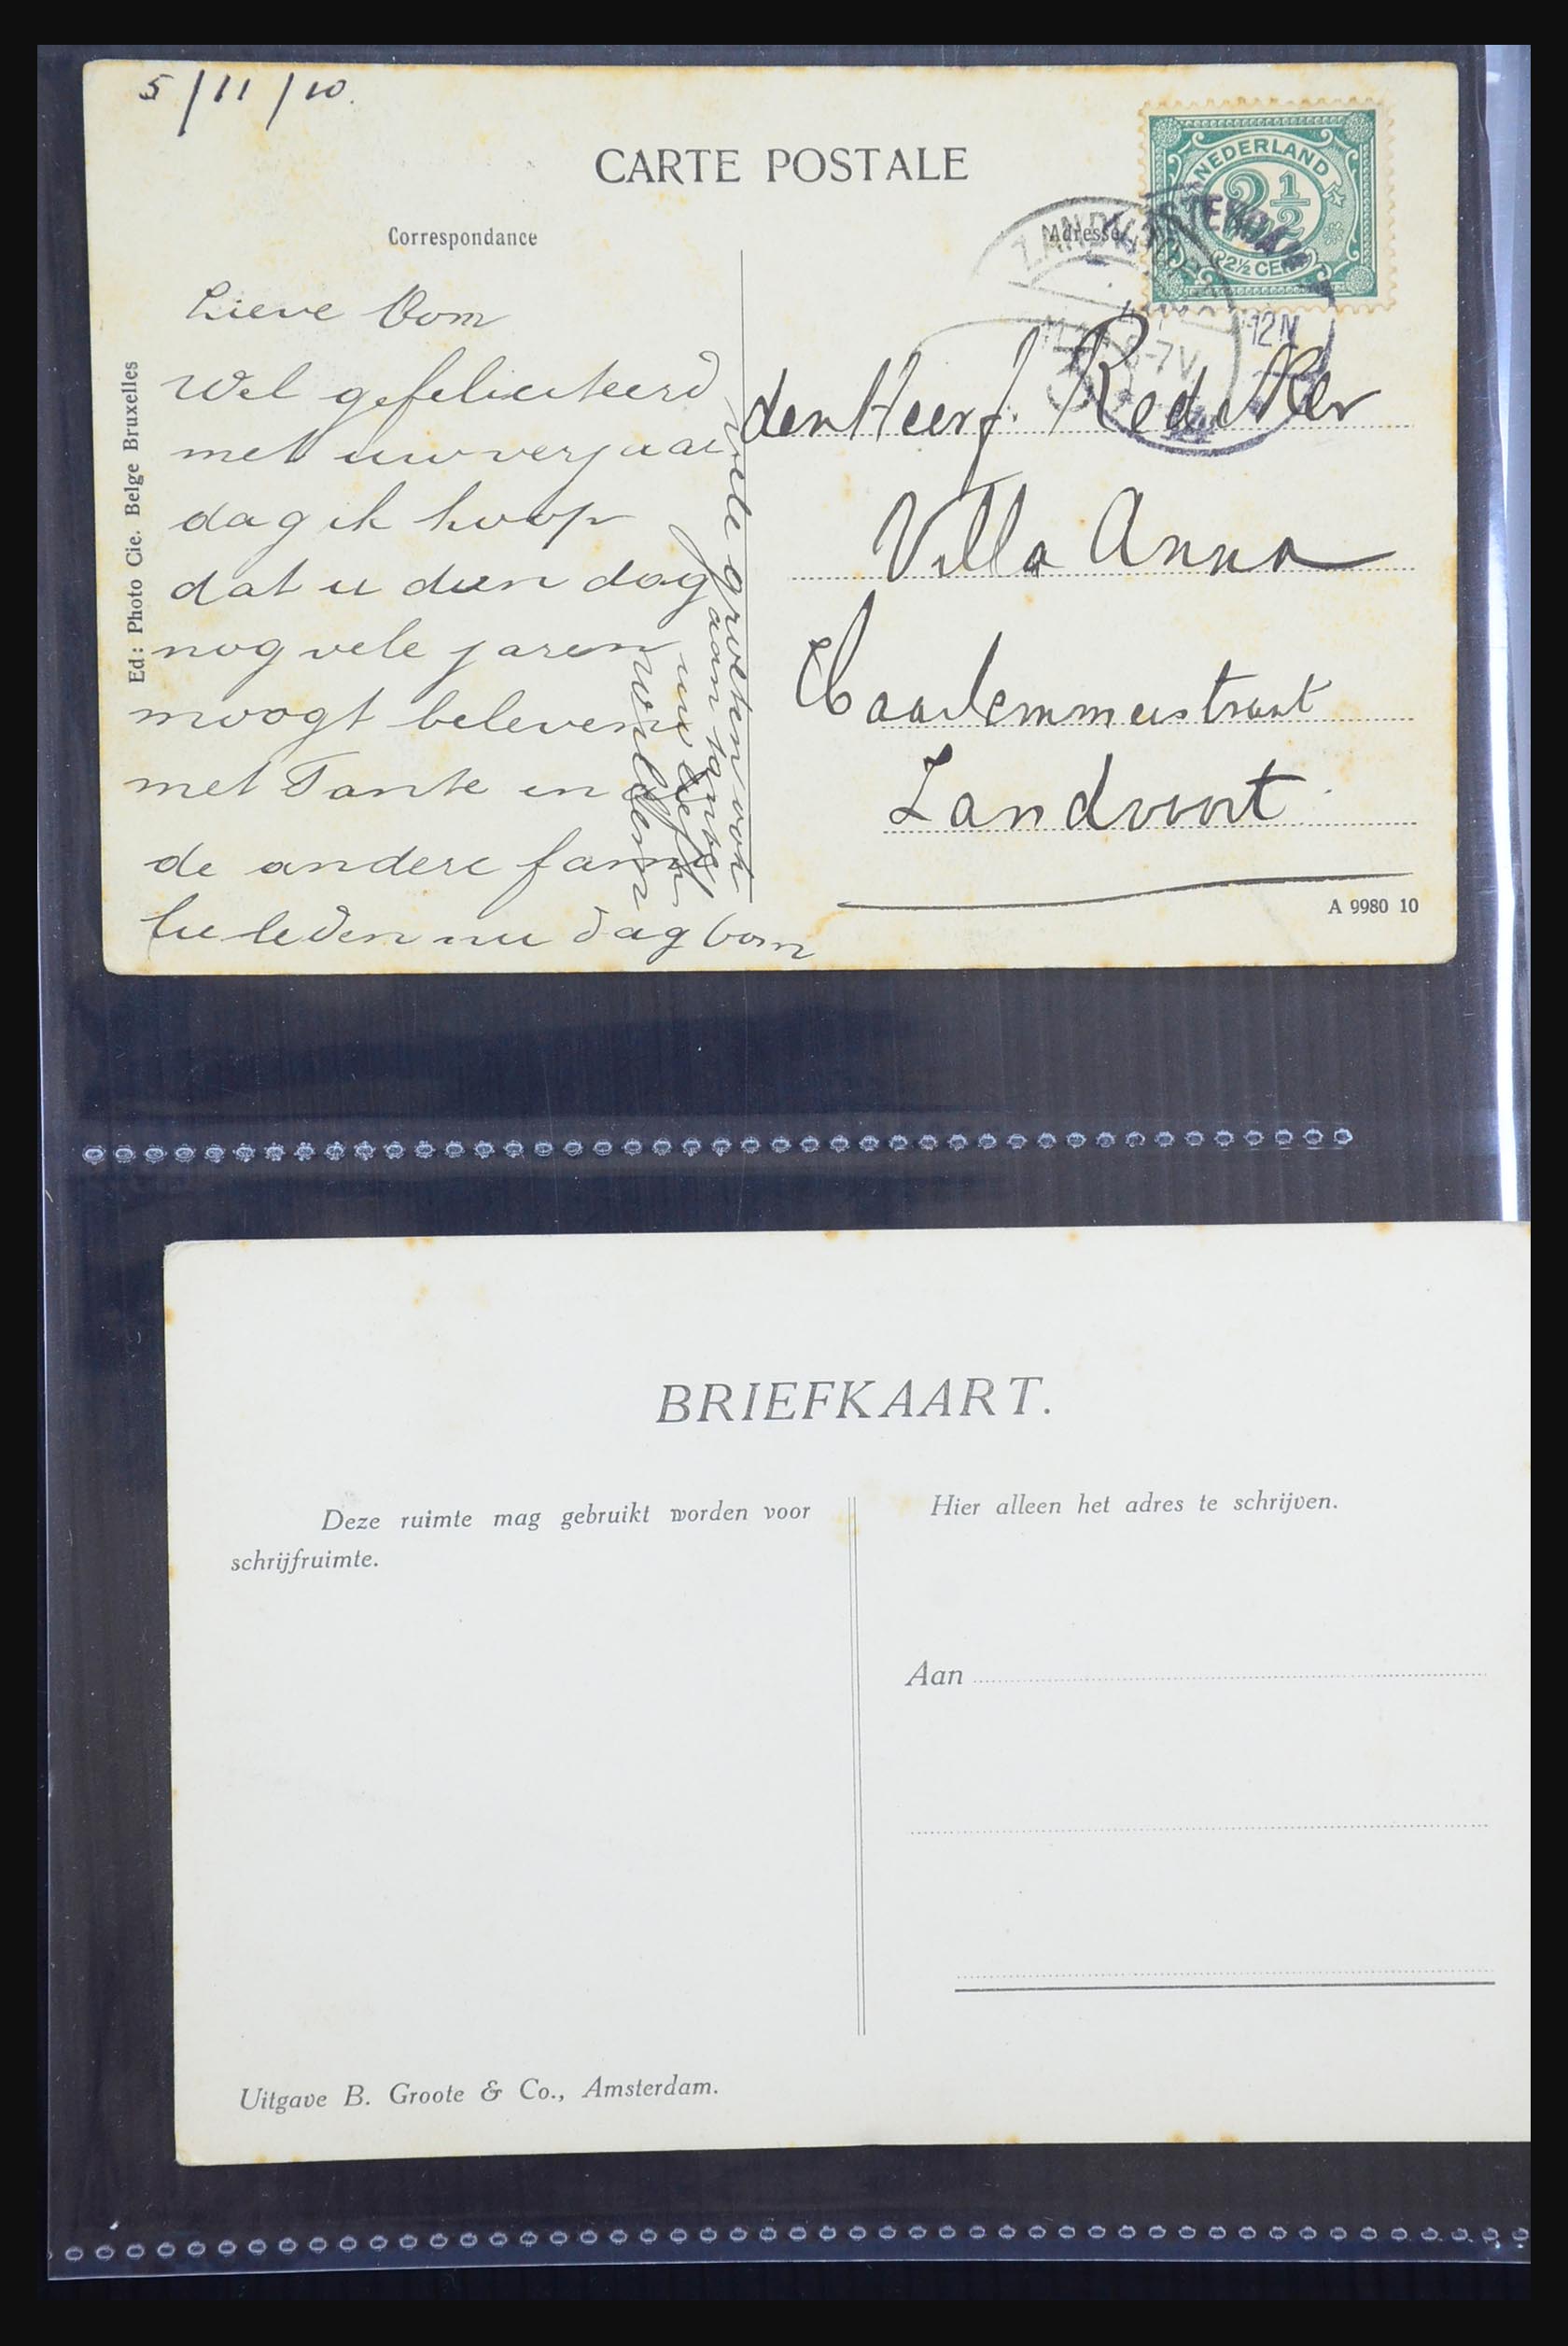 5/11/10.
CARTE POSTALE
Correspondance
Adresse
NEDERLAND
2½
2½ CENT
ZANDV
12N
8-7V
Ed: Photo Cie. Belge Bruxelles
Lieve Oom
Wel gefeliciteerd
met uw verjaar
dag ik hoop
dat u dien dag
nog vele jaren
moogt beleven
met Tante en
de andere fami
lie leden nu dag oom
vele groeten ook
aan tante
den Heer J. Redeker
Villa Anna
Haarlemmerstraat
Zandvoort
A 9980 10
BRIEFKAART.
Deze ruimte mag gebruikt worden voor
schrijfruimte.
Hier alleen het adres te schrijven.
Aan
Uitgave B. Groote & Co., Amsterdam.